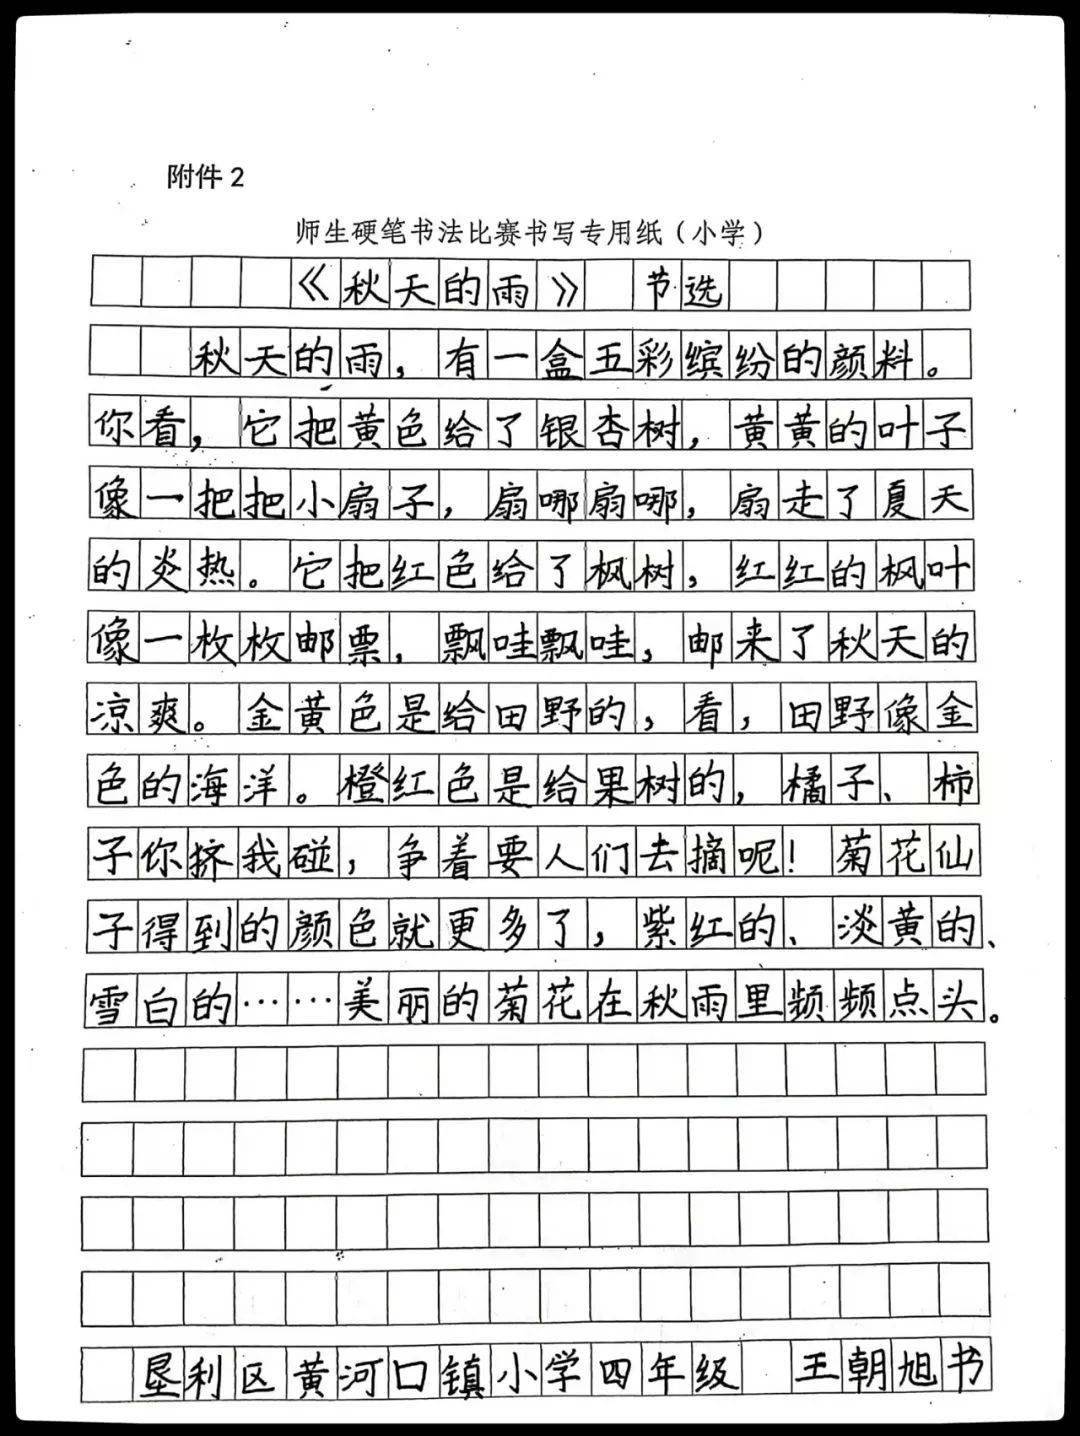 附件2
师生硬笔书法比赛书写专用纸（小学）
《秋天的雨》 节选
秋天的雨，有一盒五彩缤纷的颜料。
你看，它把黄色给了银杏树，黄黄的叶子
像一把把小扇子，扇哪扇哪，扇走了夏天
的炎热。它把红色给了枫树，红红的枫叶
像一枚枚邮票，飘哇飘哇，邮来了秋天的
凉爽。金黄色是给田野的，看，田野像金
色的海洋。橙红色是给果树的，橘子、柿
子你挤我碰，争着要人们去摘呢！菊花仙
子得到的颜色就更多了，紫红的、淡黄的、
雪白的……美丽的菊花在秋雨里频频点头。
垦利区黄河口镇小学四年级 王朝旭书